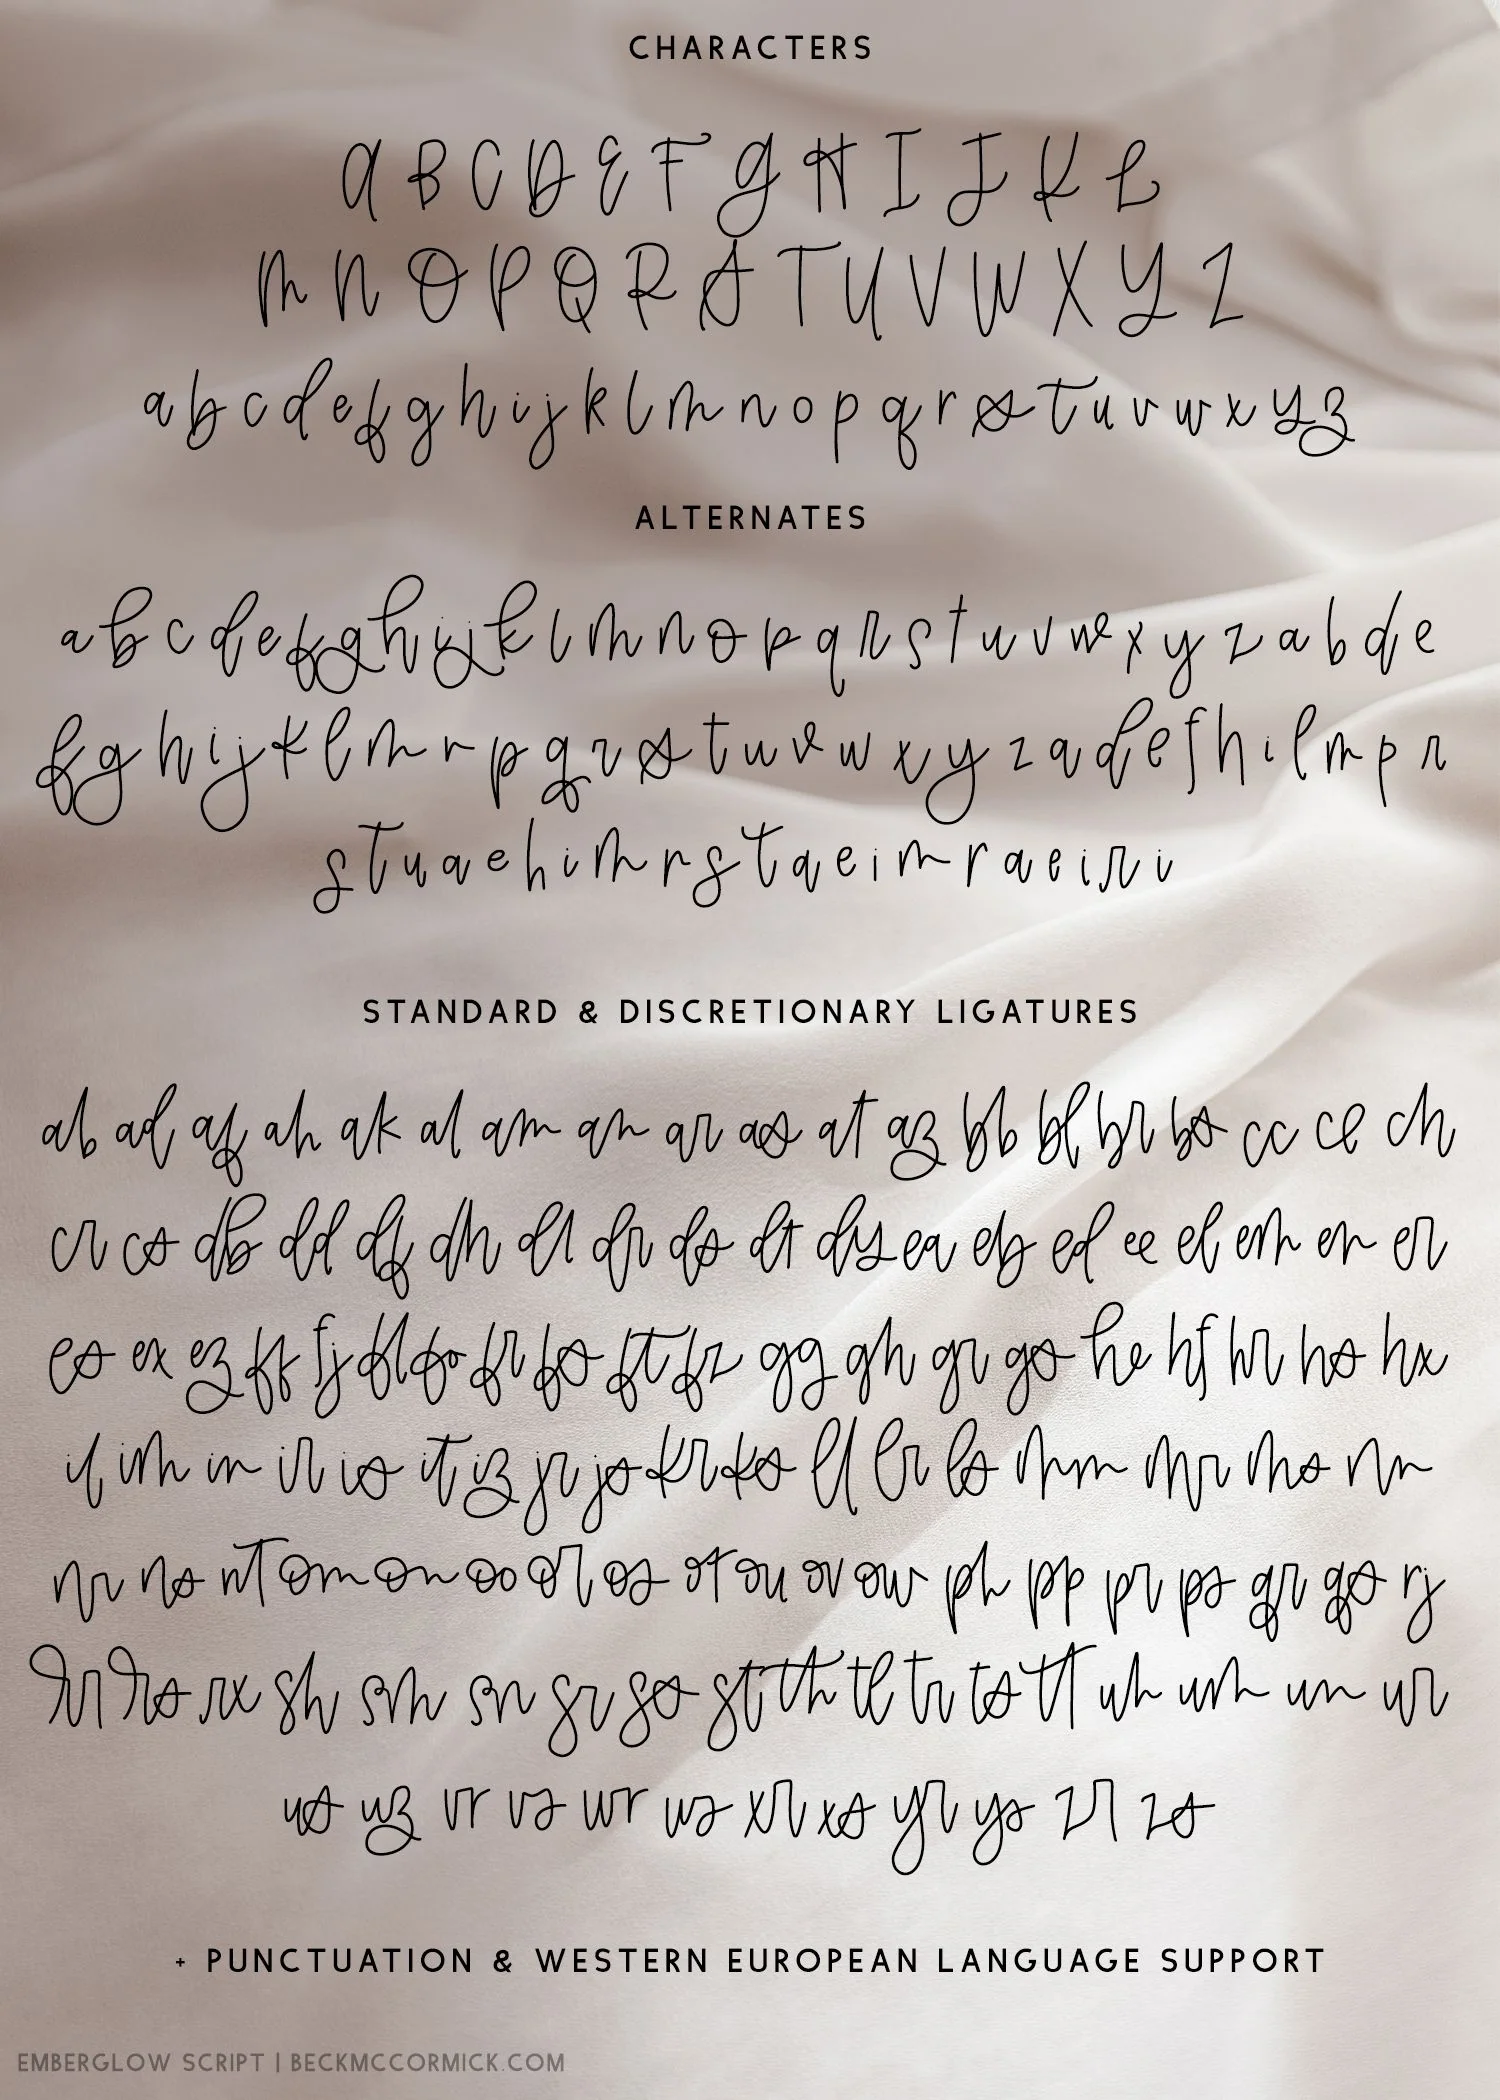 CHARACTERS
A B C D E F G H I J K L
M N O P Q R S T U V W X Y Z
a b c d e f g h i j k l m n o p q r s t u v w x y z
ALTERNATES
a b c d e f g h i j k l m n o p q r s t u v w x y z a b d e
f g h i j k l m r p q r s t u v w x y z a d e f h i l m p r
s t u a e h i m r s t a e i m r a e i r i
STANDARD & DISCRETIONARY LIGATURES
ab ad af ah ak al am an ar as at az bb bl br bs cc ce ch
cr cs db dd df dh dl dr ds dt dy ea eb ed ee el em en er
es ex ez ff fj fl fo fr fs ft fz gg gh gr gs he hf hr hs hx
if im in ir is it iz jr js kr ks ll lr ls mm mr ms nn
nr ns nt om on oo or os ot ou ov ow ph pp pr ps qr qs rj
rr rs rx sh sm sn sr ss st th tl tr ts tt uh um un ur
us uz vr vs wr ws xr xs yr ys zr zs
+ PUNCTUATION & WESTERN EUROPEAN LANGUAGE SUPPORT
EMBERGLOW SCRIPT | BECKMCCORMICK.COM